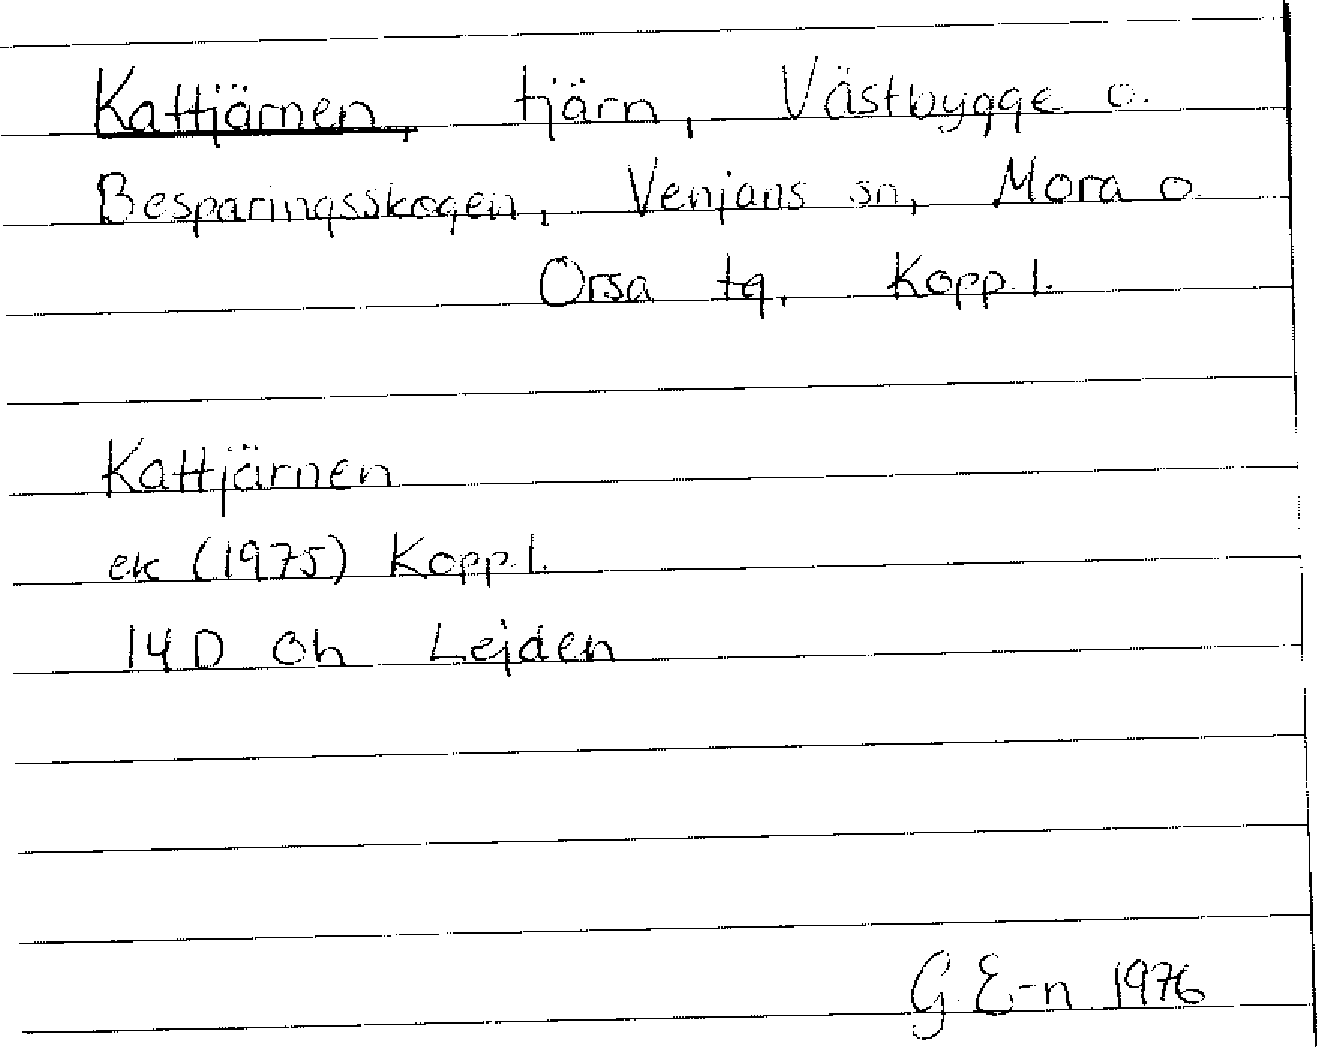 Kattjärnen, tjärn, Västbygge o.
Besparingsskogen, Venjans sn, Mora o
Orsa tg. Kopp. l.
Kattjärnen
ek (1975) Kopp. l.
14 D 0h Lejden
G. E-n 1976